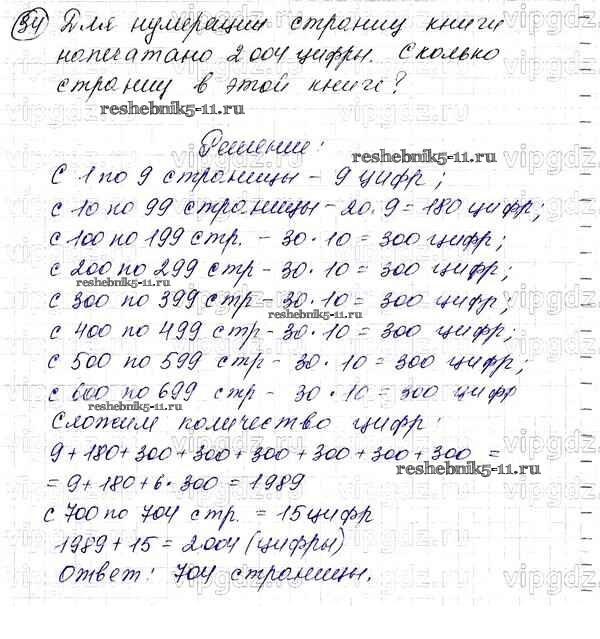 34 Для нумерации страниц книги
напечатано 2004 цифры. Сколько
страниц в этой книге?
reshebnik5-11.ru
Решение:
reshebnik5-11.ru
С 1 по 9 страницы - 9 цифр;
с 10 по 99 страницы - 20·9=180 цифр;
с 100 по 199 стр. - 30·10= 300 цифр;
с 200 по 299 стр - 30·10= 300 цифр;
reshebnik5-11.ru
с 300 по 399 стр - 30·10= 300 цифр;
reshebnik5-11.ru
с 400 по 499 стр - 30·10= 300 цифр;
с 500 по 599 стр - 30·10= 300 цифр;
с 600 по 699 стр - 30·10= 300 цифр
reshebnik5-11.ru
Сложим количество цифр:
9+180+300+300+300+300+300+300 =
reshebnik5-11.ru
= 9+180+6·300=1989
с 700 по 704 стр. = 15 цифр
1989+15=2004 (цифры)
Ответ: 704 страницы.
vipgdz.ru